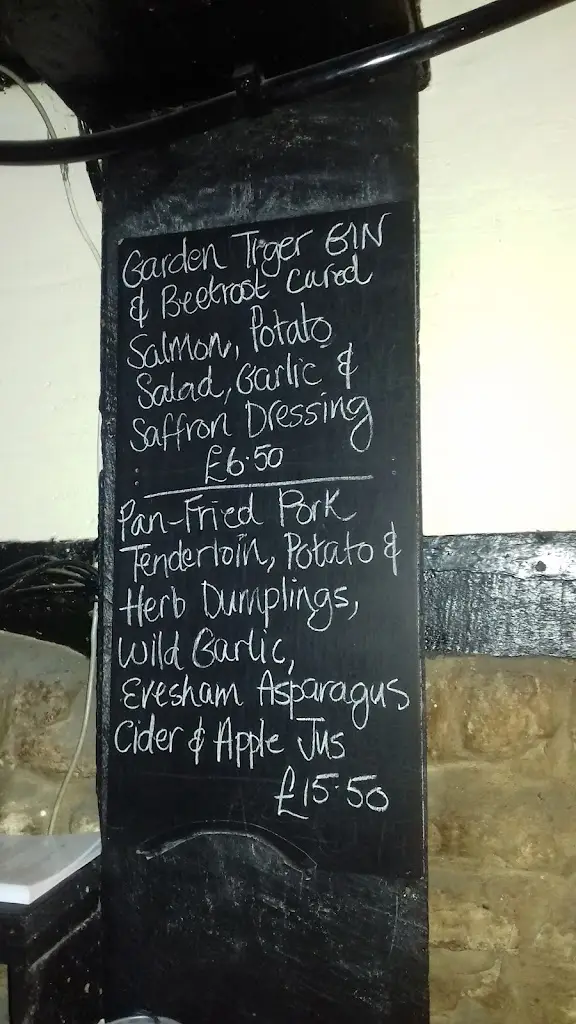 Garden Tiger GIN
& Beetroot Cured
Salmon, Potato
Salad, Garlic &
Saffron Dressing
£6.50
Pan-Fried Pork
Tenderloin, Potato &
Herb Dumplings,
Wild Garlic,
Evesham Asparagus
Cider & Apple Jus
£15.50